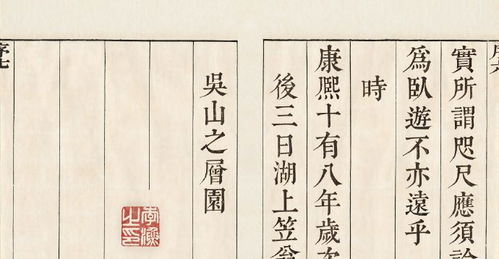 實所謂咫尺應須論
爲臥遊不亦遠乎
時
康熈十有八年歲次
後三日湖上笠翁
吳山之層園
李漁
之印
序七